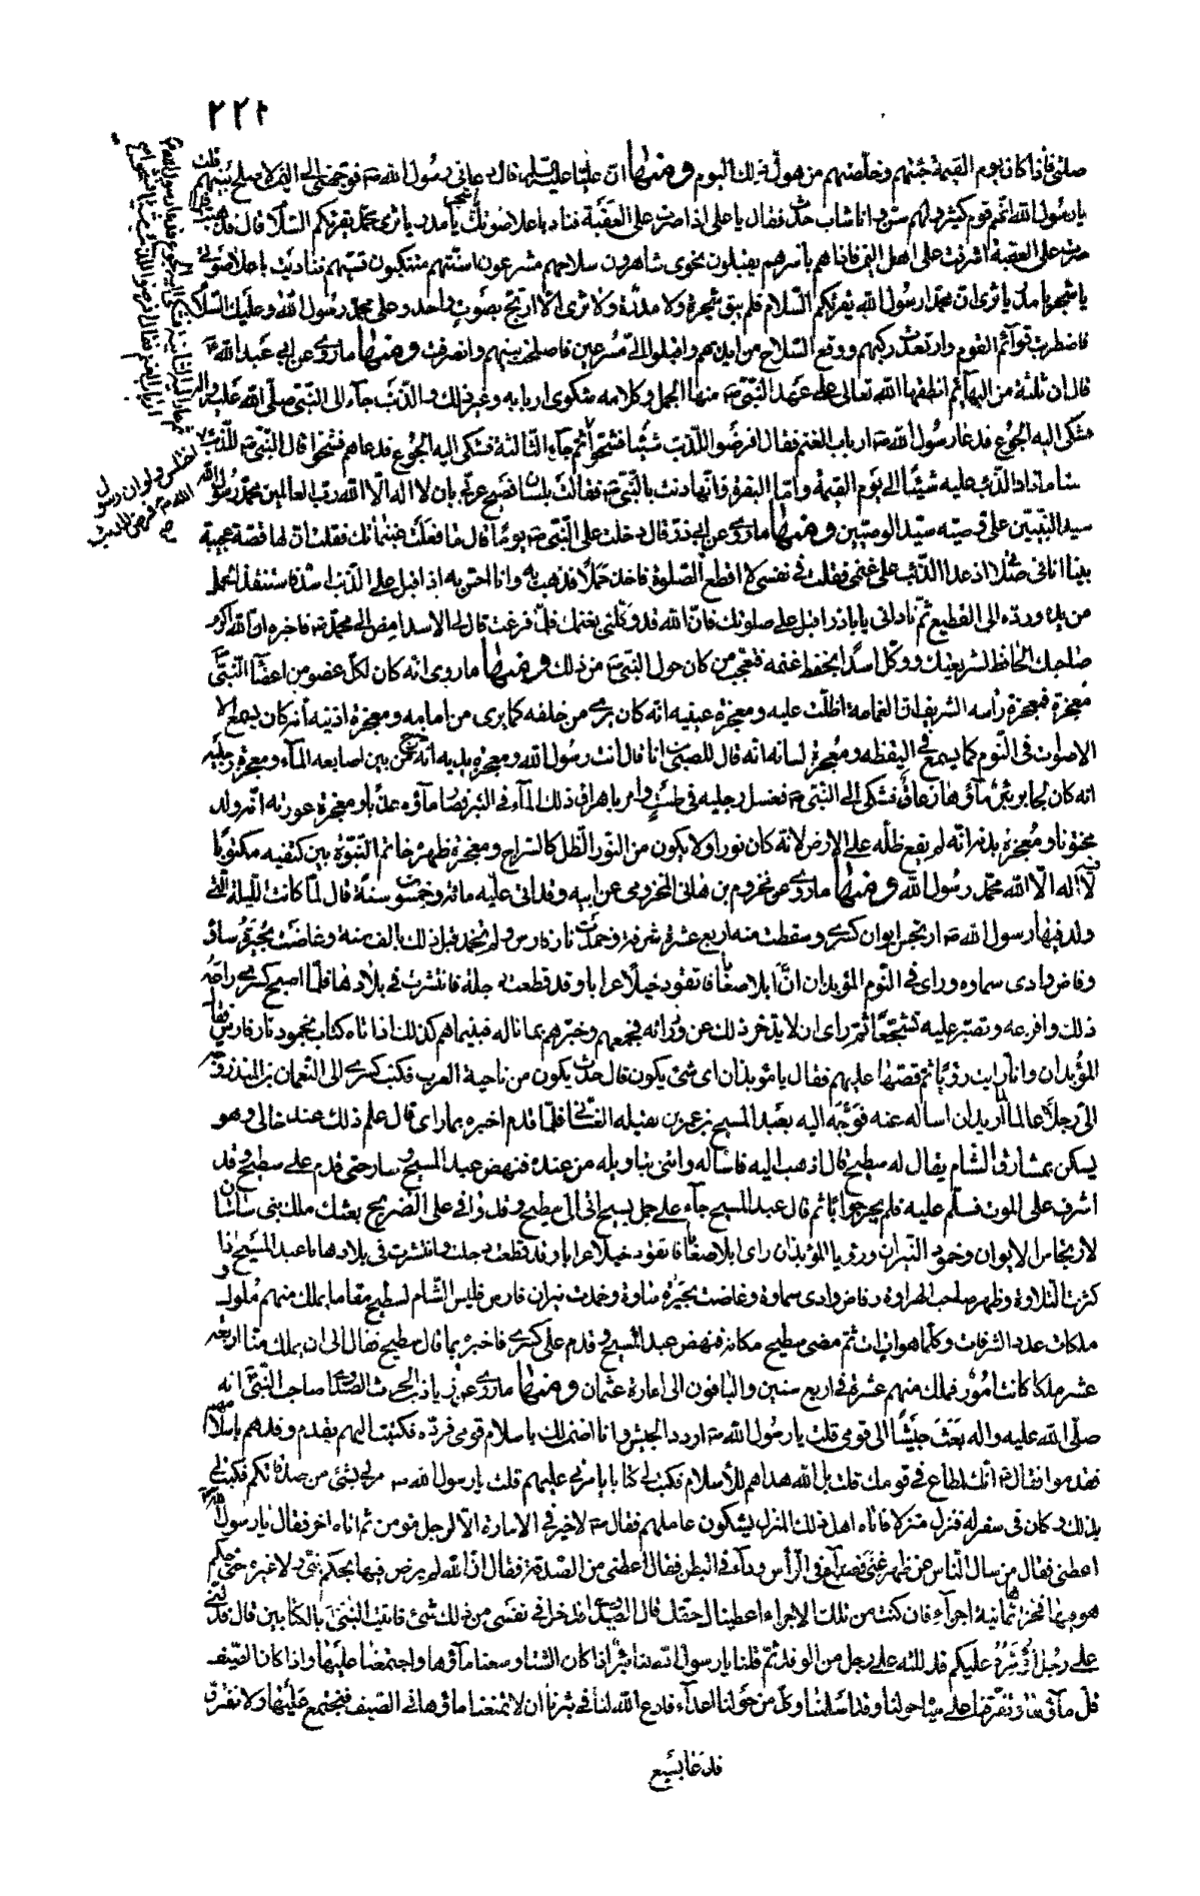 ٢٢١
صلتى فأذا كان يوم القيمة جئتهم وخلّصتهم من هول ذلك اليوم ومنها ان عليّا عليه السلم قال دعانى رسول الله ص فوجهنى الى اليمن لاصلح بينهم قلت
يا رسول الله انهم قوم كثير ولهم سن وانا شاب حدث فقال يا على اذا صرت على العقبة فناد باعلا صوتك يا شجر يا مدر يا ثرى محمد يقرئكم السّلام قال فذهبت فلما
صرت على العقبة اشرفت على اهل اليمن فاذا هم باسرهم يقبلون نحوى شاهرون سلاحهم مشرعون اسنّتهم متنكبون قسيهم فناديت باعلا صوتى
يا شجر يا مدر يا ثرى ان محمّدا رسول الله يقرئكم السّلام فلم يبق شجرة ولا مدرة ولا ثرى الّا ارتج بصوت واحد وعلى محمّد رسول الله وعليك السّلام
فاضطربت قوائم القوم وارتعدت ركبهم ووقع السّلاح من ايديهم واقبلوا الىّ مسرعين فاصلحت بينهم وانصرفت ومنها ما روى عن ابى عبد الله ع
قال ان ثلثة من البهائم انطقها الله تعالى على عهد النّبى ص منها الجمل وكلامه شكوى اربابه وغير ذلك والذّئب جآء الى النبى صلّى الله عليه واله
فشكى اليه الجوع فدعا رسول الله ص ارباب الغنم فقال افرضوا للذئب شيئا فشحّوا ثم جآء الثالثة فشكى اليه الجوع فدعاهم فشحّوا قال النّبى ص للذئب اختلس ولو ان رسول الله ص فرض للذئب
شيئا ما زاد الذئب عليه شيئا الى يوم القيمة وامّا البقرة فانها اذنت بالنّبى ص فقالت بلسان فصيح عربى بان لا اله الّا الله ربّ العالمين محمّد رسول الله
سيد النبيّين على وصيه سيّد الوصيّين ومنها ما روى عن ابى ذرّ قال دخلت على النّبى ص يوما قال ما فعلت غنيماتك فقلت ان لها قصة عجيبة
بينا انا فى صلاة اذ عدا الذّئب على غنمى فقلت فى نفسى لا اقطع الصّلوة فاخذ حملا فذهب به وانا احسّ به اذ اقبل على الذئب اسد فاستنقذ الحمل
من يده وردّه الى القطيع ثمّ نادانى يا باذر اقبل على صلوتك فانّ الله قد وكّلنى بغنمك فلمّا فرغت قال لى الاسد امض الى محمّد ص فاخبره انّ الله اكرم
صاحبك الحافظ لشريعتك ووكّل اسدا يحفظ غنمه فتعجب من كان حول النبى ص من ذلك ومنها ما روى انه كان لكلّ عضو من اعضاء النّبى ص
معجزة فمعجزة راسه الشريف ان الغمامة اظلّت عليه ومعجزة عينيه انه كان يرى من خلفه كما يرى من امامه ومعجزة اذنيه انه كان يسمع الا
الاصوات فى النّوم كما يسمع فى اليقظه ومعجزة لسانه انه قال للصبى انا قال انت رسول الله ومعجزة يديه انه خرج من بين اصابعه المآء ومعجزة رجليه
انه كان لجابر بئر مآؤها زعاق فشكى الى النّبى ص فغسل رجليه فى طشت وامر باهراق ذلك المآء فى البئر فصار مآؤه عذبا ومعجزة عورته انه ولد
مختونا ومعجزة بدنه انّه لم يقع ظلّه على الارض لانه كان نورا ولا يكون من النّور الظلّ كالسّراج ومعجزة ظهره خاتم النّبوّة بين كتفيه مكتوبا
لا اله الّا الله محمّد رسول الله ومنها ما روى عن مخزوم بن هانى المخزومى عن ابيه وقد اتى عليه مائة وخمسون سنة قال لمّا كانت اللّيلة الّتى
ولد فيها رسول الله ص ارتجس ايوان كسرى وسقطت منه اربع عشرة شرفة وخمدت نار فارس ولم تخمد قبل ذلك بالف سنة وغاضت بحيرة ساوه
وفاض وادى سماوه وراى فى النّوم المؤبدان انّ ابلا صعابا تقود خيلا عرابا وقد قطعت دجلة فانتشرت فى بلادها فلمّا اصبح كسرى راعه
ذلك وافزعه وتصبّر عليه تشجّعا ثمّ راى ان لا يدّخر ذلك عن وزرائه فجمعهم وخبّرهم بما ناله فبينما هم كذلك اذ اتاه كتاب بخمود نار فارس فقال
المؤبدان وانا رايت رؤيا ثم قصّها عليهم فقال يا مؤبدان اى شئ يكون قال حدث يكون من ناحية العرب فكتب كسرى الى النّعمان بن المنذر وجّه
الىّ رجلا عالما اريد ان اساله عنه فوجّه اليه بعبد المسيح بن عمرو بن نفيله الغسّانى فلمّا قدم اخبره بما راى قال علم ذلك عند خالى وهو
يسكن بمشارق الشّام يقال له سطيح قال اذهب اليه فاساله واتنى بتاويله من عنده فنهض عبد المسيح وسار حتى قدم على سطيح وقد
اشرف على الموت فسلّم عليه فلم يحر جوابا ثم قال عبد المسيح جآء على جمل يسيح اتى الى سطيح وقد وافى على الضّريح بعثك ملك بنى ساسان
لارتجاس الايوان وخمود النّيران ورؤيا المؤبدان راى ابلا صعابا تقود خيلا عرابا وقد قطعت دجلة وانتشرت فى بلادها يا عبد المسيح اذا
كثرت التّلاوة وظهر صاحب الهراوة وفاض وادى سماوة وغاضت بحيرة ساوة وخمدت نيران فارس فليس الشّام لسطيح مقاما يملك منهم ملوك و
ملكات عدد الشّرفات وكلّما هو ات ات ثم مضى سطيح مكانه فنهض عبد المسيح وقدم على كسرى فاخبره بما قال سطيح فقال الى ان يملك منّا اربعة
عشر ملكا كانت امور فملك منهم عشرة فى اربع سنين والباقون الى امارة عثمان ومنها ما روى عن زياد بن الحرث الصّدائى صاحب النّبى انه
صلّى الله عليه واله بعث جيشا الى قومى قلت يا رسول الله ص اردد الجيش وانا اضمن لك باسلام قومى فردّه فكتبت اليهم فقدم وفدهم باسلامهم
فقال ص انّك لمطاع فى قومك قلت بل الله هداهم للاسلام فكتب لى كتابا يامرنى عليهم قلت يا رسول الله ص مر لى بشئ من صدقاتكم فكتب لى
بذلك وكان فى سفر له فنزل منزلا فاتاه اهل ذلك المنزل يشكون عاملهم فقال ص لا خير فى الامارة الّا لرجل مؤمن ثم اتاه اخر فقال يا رسول الله
اعطنى فقال من سال النّاس عن ظهر غنى فصداع فى الرّأس وداء فى البطن فقال اعطنى من الصّدقة فقال انّ الله لم يرض فيها بحكم نبى ولا غيره حتى حكم
هو فيها فجزّاها ثمانية اجزآء فان كنت من تلك الاجزاء اعطيناك حقك قال الصّدائى فدخل فى نفسى من ذلك شئ فاتيت النّبى بالكتابين قال فدلّنى
على رجل اؤمّره عليكم فدللته على رجل من الوفد ثمّ قلنا يا رسول الله ان لنا بئرا اذا كان الشتاء وسعنا مآؤها واجتمعنا عليها واذا كان الصّيف
قلّ مآؤها وتفرّقنا على مياه حولنا وقد اسلمنا وكلّ من حولنا اعدآء فادع الله لنا فى بئرنا ان لا تمنعنا ماؤها فى الصيف فنجتمع عليها ولا نتفرّق
فدعا بسبع